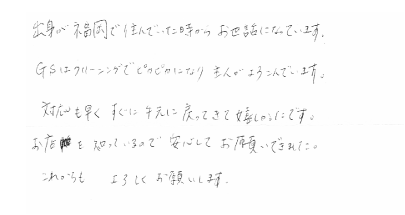 出身が福岡で住んでいた時からお世話になっています。
GSはクリーニングでピカピカになり主人がよろこんでいます。
対応も早くすぐに手元に戻ってきて嬉しかったです。
お店を知っているので安心してお願いできました。
これからもよろしくお願いします。